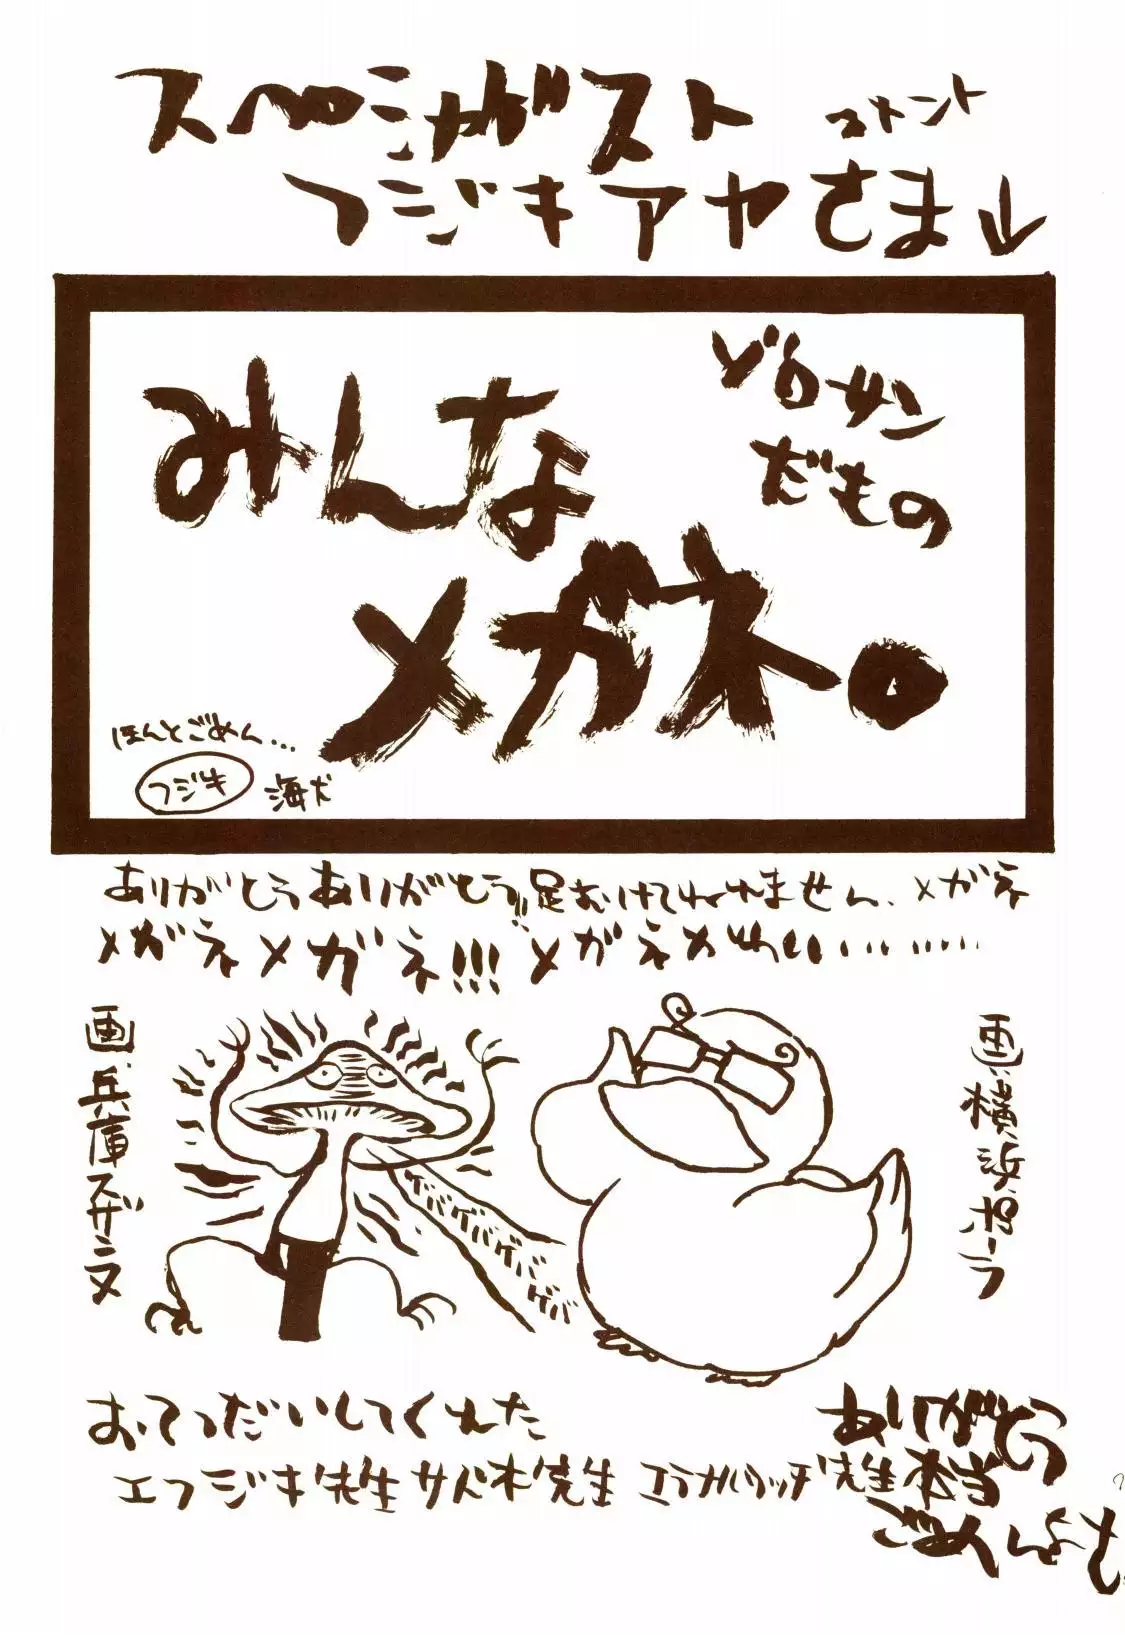 スペシャルゲスト コメント
フジキアヤさま↓
ゾロサン
だもの
みんな
メガネ。
ほんとごめん…
フジキ 海犬
ありがとうありがとう!!足むけてねれません、メガネ
メガネメガネ!!! メガネ
画、兵庫スザンヌ
ゲバゲバゲバゲバゲバ
画、横浜ポーラ
おてつだいしてくれた
エフジキ先生 サド木先生
先生 本当
ありがとう
ごめんよも